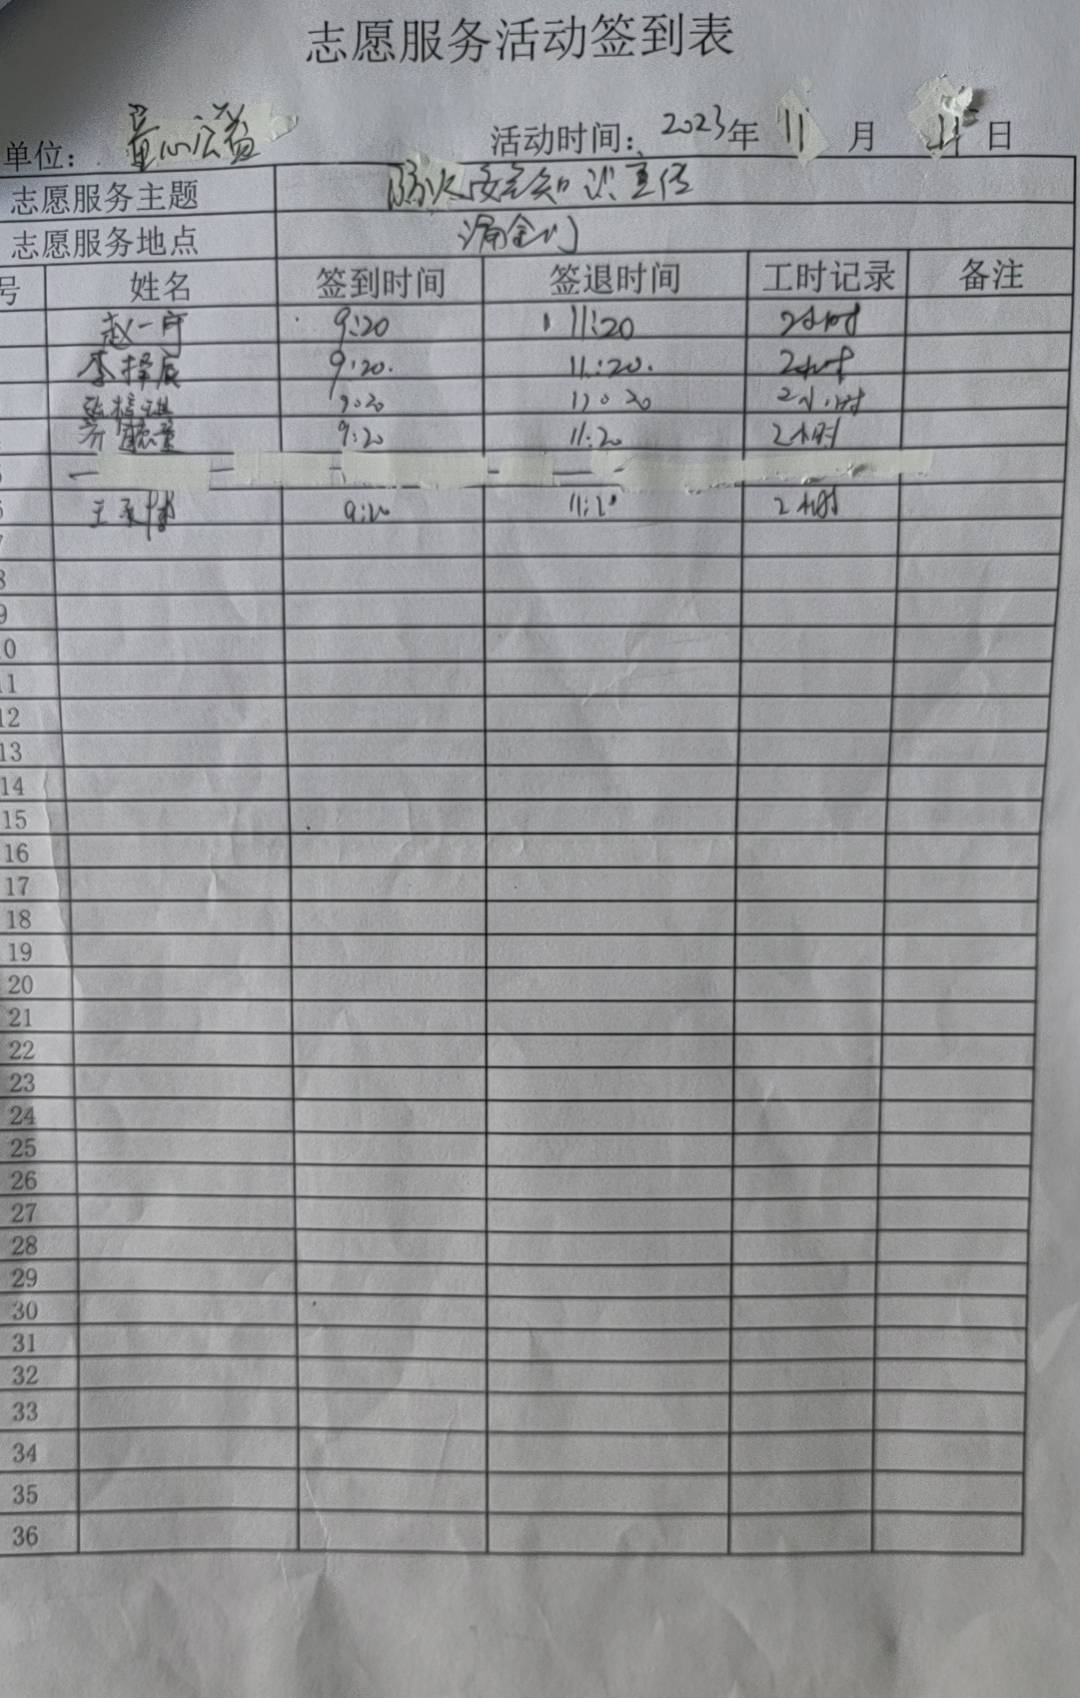 志愿服务活动签到表
单位: 童心公益 活动时间: 2023年 11 月 日
志愿服务主题 防火安全知识宣传
志愿服务地点 涌金门
号 姓名 签到时间 签退时间 工时记录 备注
赵一宁 9:20 11:20 2小时
李择辰 9:20. 11:20. 2小时
9:20 11:20 2小时
9:20 11:20 2小时
王 9:20 11:20 2小时
7
8
9
10
11
12
13
14
15
16
17
18
19
20
21
22
23
24
25
26
27
28
29
30
31
32
33
34
35
36